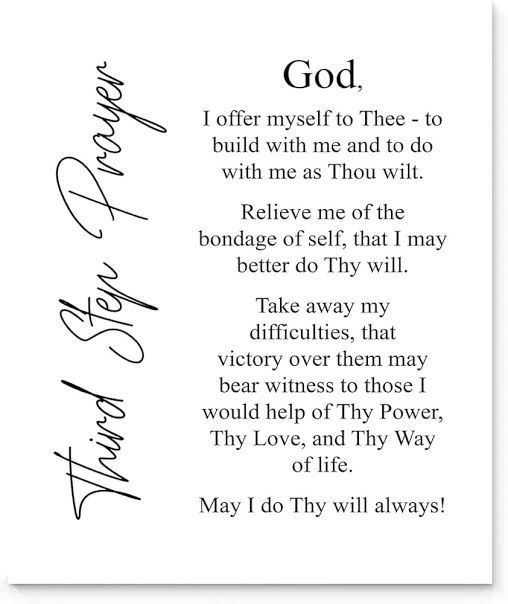 Third Step Prayer
God,
I offer myself to Thee - to
build with me and to do
with me as Thou wilt.
Relieve me of the
bondage of self, that I may
better do Thy will.
Take away my
difficulties, that
victory over them may
bear witness to those I
would help of Thy Power,
Thy Love, and Thy Way
of life.
May I do Thy will always!